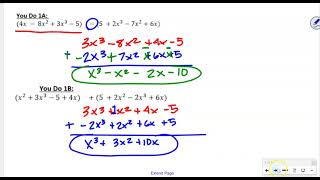 You Do 1A:
(4x − 8x² + 3x³ − 5) − (5 + 2x³ − 7x² + 6x)
3x³ − 8x² + 4x − 5
+ −2x³ + 7x² − 6x − 5
x³ − x² − 2x − 10
You Do 1B:
(x² + 3x³ − 5 + 4x) + (5 + 2x² − 2x³ + 6x)
3x³ + 1x² + 4x − 5
+ −2x³ + 2x² + 6x + 5
x³ + 3x² + 10x
Extend Page